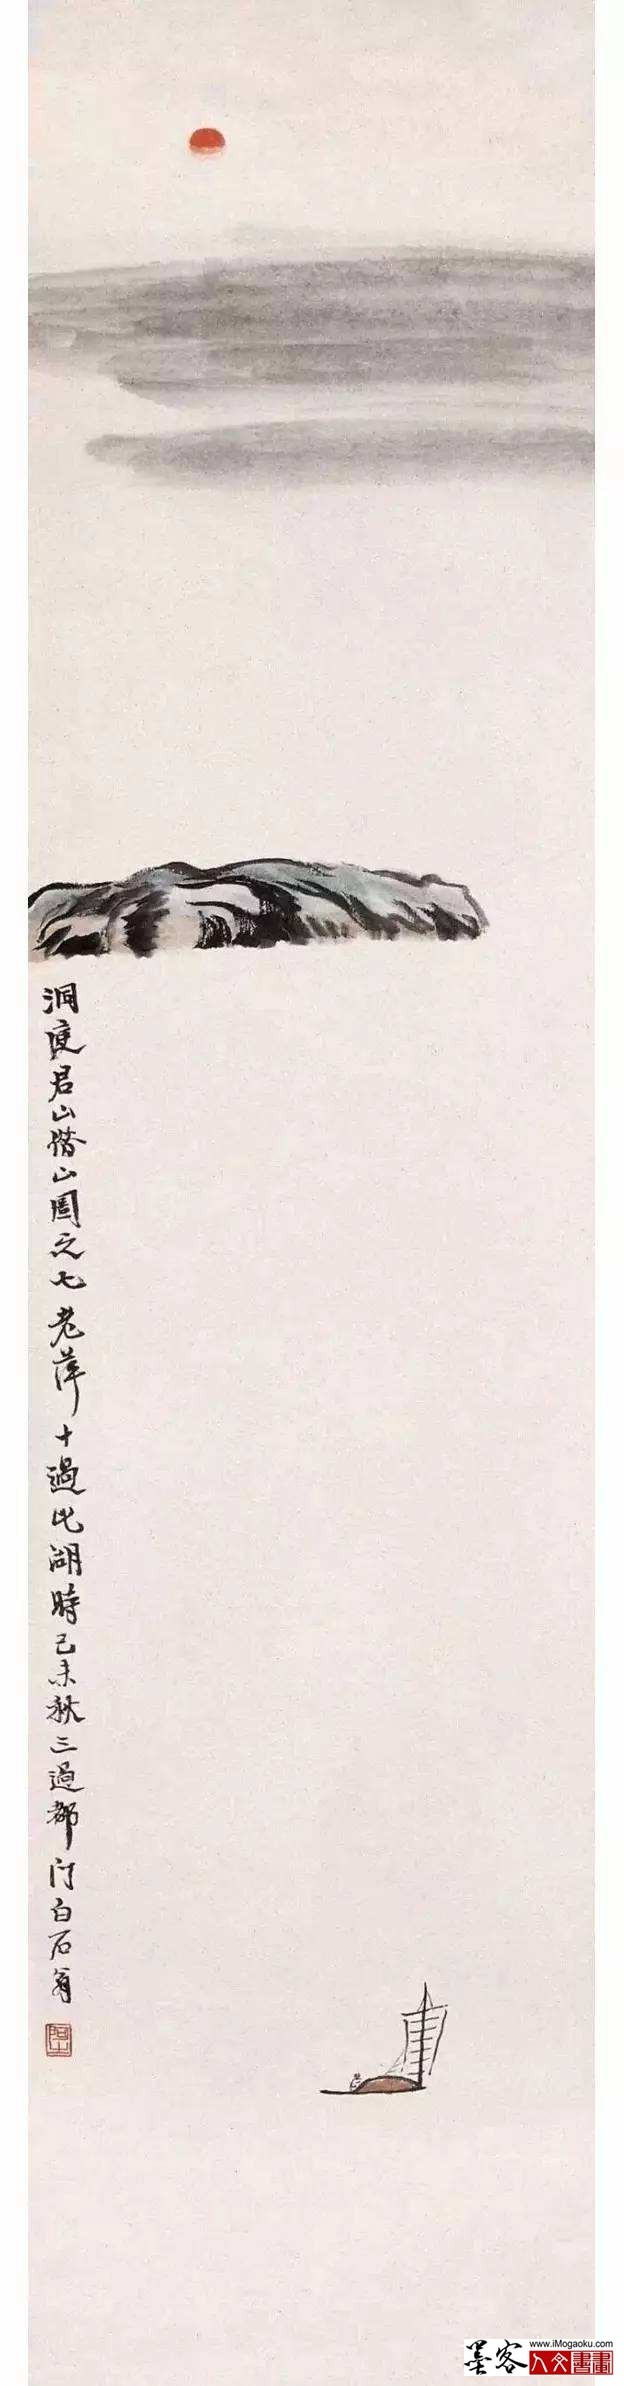 洞庭君山借山图之七老萍十過此湖時己未秋三過都门白石翁
阿芝
墨客
www.iMogaoku.com
人文書畫